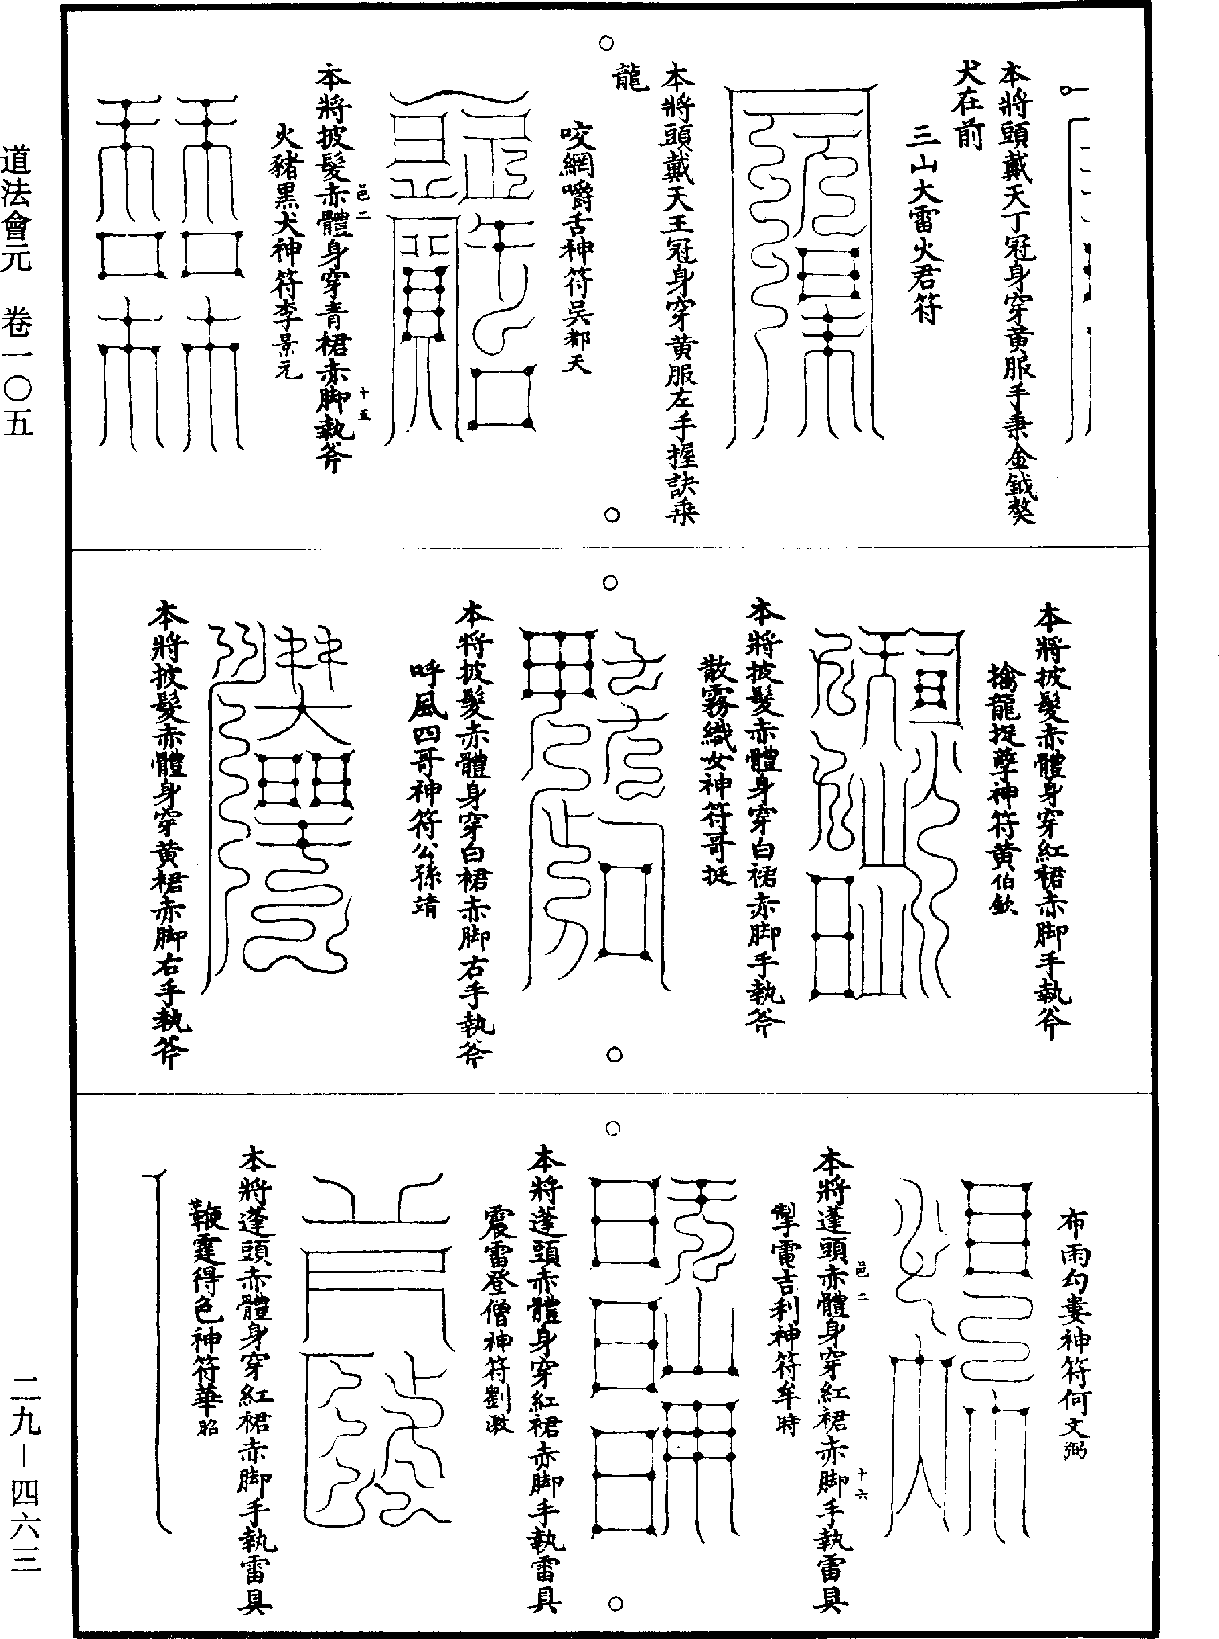 本將頭戴天丁冠身穿黃服手秉金鉞獒
犬在前
三山大雷火君符
本將頭戴天王冠身穿黃服左手握訣乘
龍
咬網嚼舌神符吳都天
本將披髮赤體身穿青裙赤脚執斧
邑二
十五
火豬黑犬神符李景元
本將披髮赤體身穿紅裙赤脚手執斧
擒龍捉孽神符黃伯欽
本將披髮赤體身穿白裙赤脚手執斧
散霧織女神符哥挺
本將披髮赤體身穿白裙赤脚右手執斧
呼風四哥神符公孫靖
本將披髮赤體身穿黃裙赤脚右手執斧
布雨勾婁神符何文弼
本將蓬頭赤體身穿紅裙赤脚手執雷具
邑二
十六
掣電吉利神符牟時
本將蓬頭赤體身穿紅裙赤脚手執雷具
震雷登僧神符劉
本將蓬頭赤體身穿紅裙赤脚手執雷具
鞭霆得色神符華昭
道法會元 卷一〇五
二九—四六三